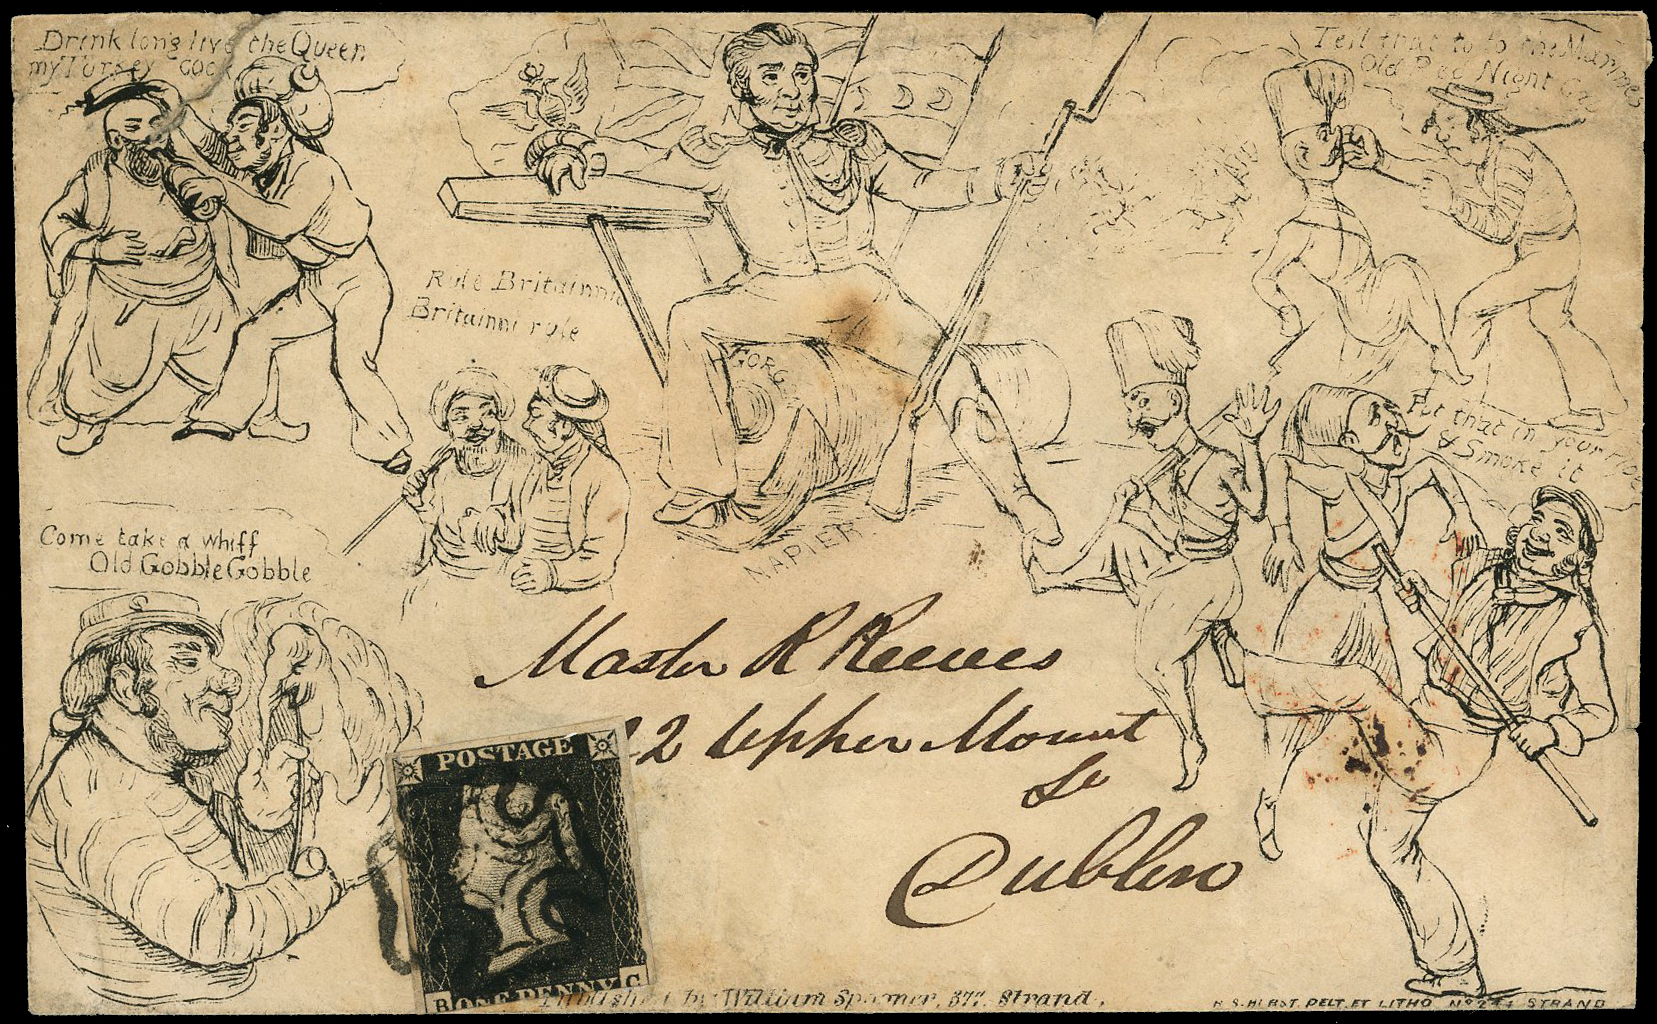 Drink long live the Queen
my Turkey cock
Tell that to to the Marines
Old Red Night Cap
Rule Britainnia
Britainni rule
GORG
NAPIER
Put that in your
& Smoke it
Come take a whiff
Old Gobble Gobble
Master R Reeves
22 Upper Mount
St
Dublin
POSTAGE
B ONE PENNY C
Published by William Spooner, 377, Strand.
DELT. ET LITHO Nº STRAND